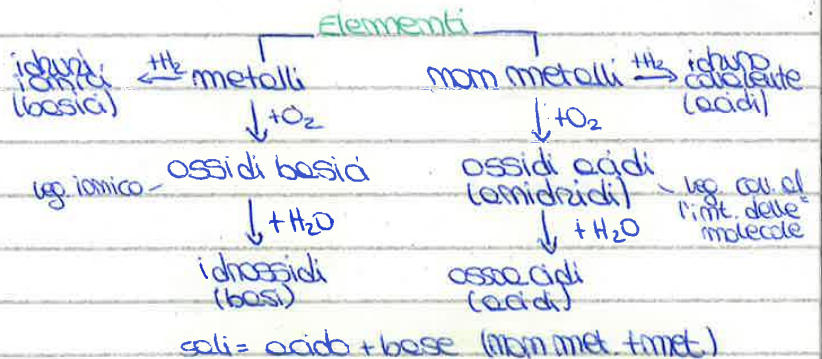 Elementi
idruri ionici (basici) +H₂ metalli non metalli +H₂ idruro covalente (acidi)
+O₂ +O₂
leg. ionico - ossidi basici ossidi acidi (anidridi) - leg. cov. al l'int. delle molecole
+H₂O +H₂O
idrossidi (basi) ossoacidi (acidi)
sali = acido + base (non met. + met.)